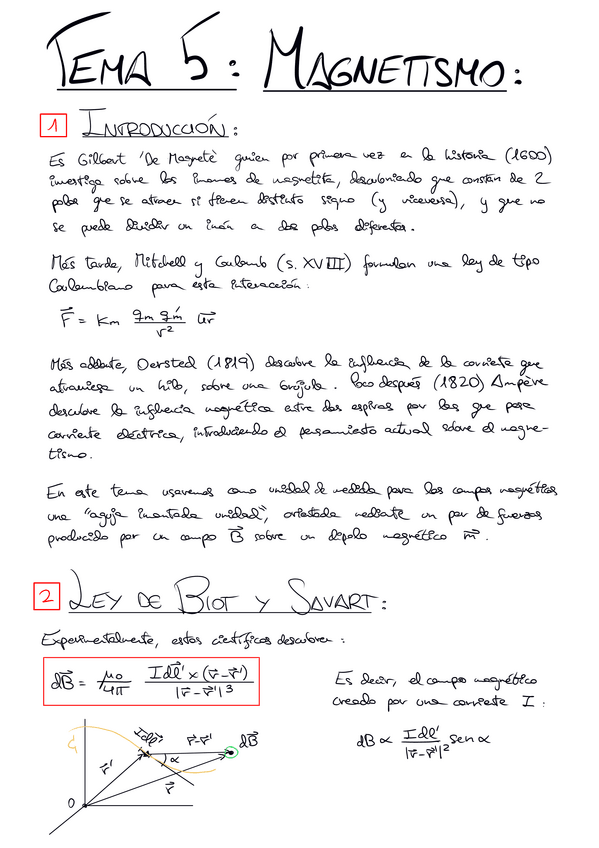 TEMA 5: MAGNETISMO:
1 INTRODUCCIÓN:
Es Gilbert 'De Magnete' quien por primera vez en la historia (1600)
investiga sobre los imanes de magnetita, descubriendo que constan de 2
polos que se atraen si tienen distinto signo (y viceversa), y que no
se puede dividir un imán en dos polos diferentes.
Más tarde, Mitchell y Coulomb (s. XVIII) formulan una ley de tipo
Coulombiano para esta interacción:
F⃗ = Km qm qm' / r² u⃗r
Más adelante, Oersted (1819) descubre la influencia de la corriente que
atraviesa un hilo, sobre una brújula. Poco después (1820) Ampère
descubre la influencia magnética entre dos espiras por las que pasa
corriente eléctrica, introduciendo el pensamiento actual sobre el magne-
tismo.
En este tema usaremos como unidad de medida para los campos magnéticos
una "aguja imantada unidad", orientada mediante un par de fuerzas
producido por un campo B⃗ sobre un dipolo magnético m⃗.
2 LEY DE BIOT Y SAVART:
Experimentalmente, estos científicos descubren:
dB⃗ = μ₀/4π Idl⃗' × (r⃗ - r⃗') / |r⃗ - r⃗'|³
Es decir, el campo magnético
creado por una corriente I:
dB ∝ Idl' / |r⃗ - r⃗'|² sen α
Idl⃗' r⃗-r⃗' dB⃗
r⃗' α
r⃗
O